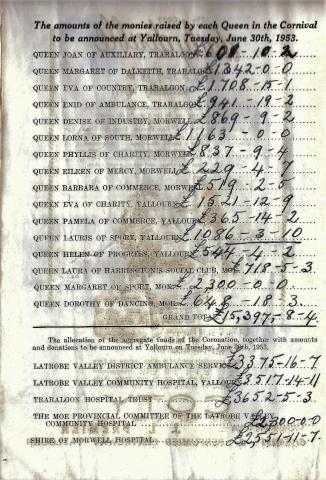 The amounts of the monies raised by each Queen in the Carnival
to be announced at Yallourn, Tuesday, June 30th, 1953.
QUEEN JOAN OF AUXILIARY, TRARALGON £601-10-2
QUEEN MARGARET OF DALKEITH, TRARALGON £1342-0-0
QUEEN EVA OF COUNTRY, TRARALGON £1708-15-1
QUEEN ENID OF AMBULANCE, TRARALGON £941-19-2
QUEEN DENISE OF INDUSTRY, MORWELL £869-9-2
QUEEN LORNA OF SOUTH, MORWELL £1163-0-0
QUEEN PHYLLIS OF CHARITY, MORWELL £837-9-4
QUEEN EILEEN OF MERCY, MORWELL £229-4-7
QUEEN BARBARA OF COMMERCE, MORWELL £519-2-5
QUEEN EVA OF CHARITY, YALLOURN £1521-12-9
QUEEN PAMELA OF COMMERCE, YALLOURN £365-14-2
QUEEN LAURIS OF SPORT, YALLOURN £1086-3-10
QUEEN HELEN OF PROGRESS, YALLOURN £544-4-2
QUEEN LAURA OF HARRINGTON'S SOCIAL CLUB, MOE £718-5-3
QUEEN MARGARET OF SPORT, MOE £2300-0-0
QUEEN DOROTHY OF DANCING, MOE 18-3
GRAND TOTAL £15,397-8-4
The allocation of the aggregate funds of the Coronation, together with amounts
and donations to be announced at Yallourn on Tuesday, June 30th, 1953.
LATROBE VALLEY DISTRICT AMBULANCE SERVICE £3375-16-7
LATROBE VALLEY COMMUNITY HOSPITAL, YALLOURN £3517-14-11
TRARALGON HOSPITAL TRUST £3652-5-3
THE MOE PROVINCIAL COMMITTEE OF THE LATROBE VALLEY
COMMUNITY HOSPITAL £2300-0-0
SHIRE OF MORWELL HOSPITAL £2551-11-7